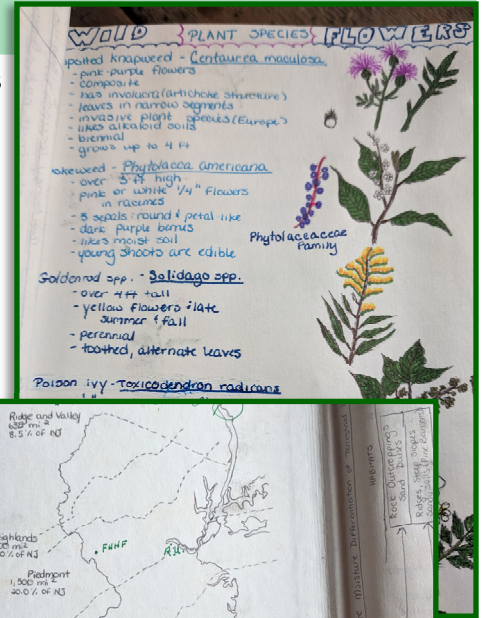 WILD {PLANT SPECIES} FLOWERS
spotted knapweed - Centaurea maculosa
- pink-purple flowers
- composite
- has involucra (artichoke structure)
- leaves in narrow segments
- invasive plant species (Europe)
- likes alkaloid soils
- biennial
- grows up to 4 ft
okeweed - Phytolacca americana
- over 5 ft high
- pink or white 1/4" flowers
in racemes
- 5 sepals: round & petal like
- dark purple berries
- likes moist soil
- young shoots are edible
Phytolaceaceae
Family
Goldenrod spp. - Solidago spp.
- over 4 ft tall
- yellow flowers: late
summer & fall
- perennial
- toothed, alternate leaves
Poison ivy - Toxicodendron radicans
Ridge and Valley
635 mi²
8.5% of NJ
ighlands
00 mi²
0% of NJ
FHHF
RU
Piedmont
1,500 mi²
20.0% of NJ
Moisture Differentiation of
HABITATS
Rock Outcroppings
Sand Dunes
Ridges, Steep Slopes
Sandy Soils (Pine Barrens)